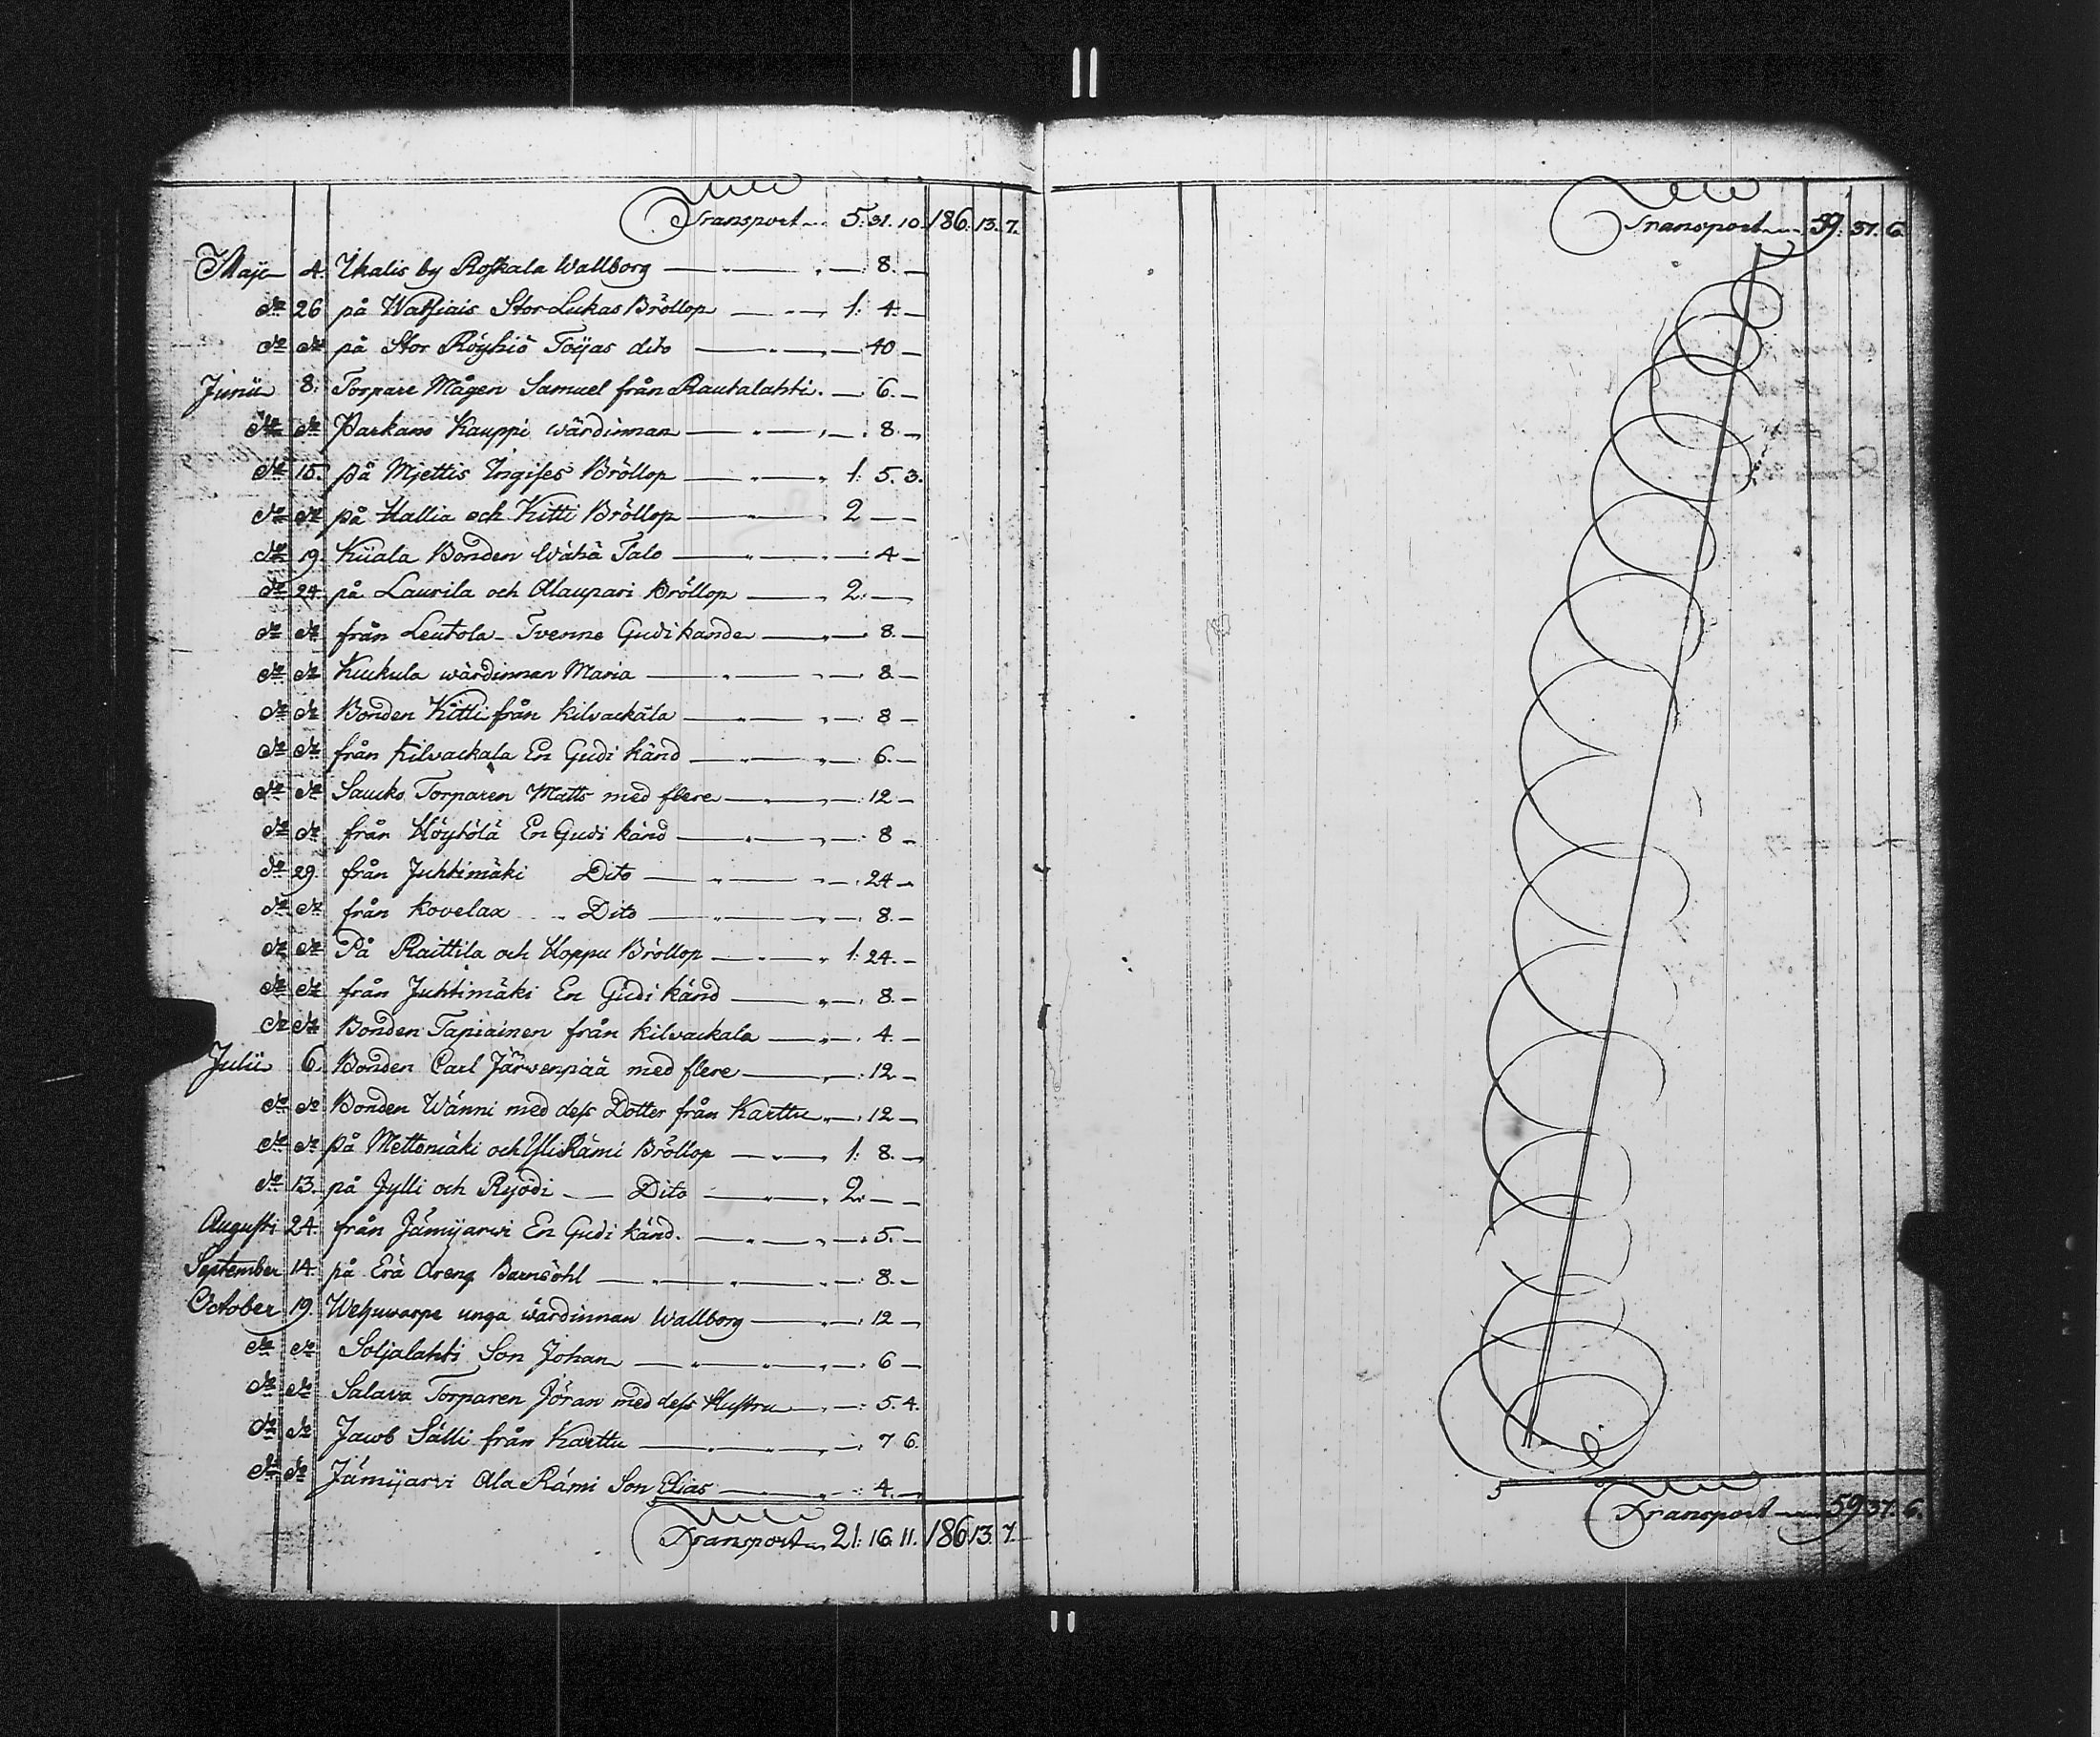 Transport 5: 31. 10. 186. 13. 7.
Maji 4. Ikalis by Roskala Wallborg — 8. —
do 26 på Watsiais Stor Lukas Bröllop — 1: 4. —
do do på Stor Röyhiö Toijas dito — 40 —
Junii 8. Torpare Mågen Samuel från Rautalahti. — 6. —
do do Parkano Kauppi wärdinnan — 8. —
do 15. på Mjettis Ingises Bröllop — 1: 5. 3.
do do på Hallia och Kitti Bröllop — 2 — —
do 19. Kiiala Bonden Wähä Talo — 4 —
do 24. på Laurila och Alaupari Bröllop — 2. —
do do från Leutola Tvenne Gudi kände — 8. —
do do Kuckula wärdinnan Maria — 8 —
do do Bonden Kitti från Kilvackala — 8 —
do do från Kilvackala En Gudi känd — 6. —
do do Saucko Torparen Matts med flere — 12 —
do do från Höytölä En Gudi känd — 8 —
do 29. från Juhtimäki Dito — 24 —
do do från Kovelax Dito — 8. —
do do På Raittila och Hoppu Bröllop — 1: 24. —
do do från Juhtimäki En Gudi känd — 8. —
do do Bonden Tapiainen från Kilvackala — 4. —
Julii 6. Bonden Carl Järvenpää med flere — 12 —
do do Bonden Wänni med dess Dotter från Karttu — 12 —
do do på Mettemäki och Yli Rämi Bröllop — 1: 8. —
do 13. på Jylli och Ryödi — Dito — 2. — —
Augusti 24. från Jämijarvi En Gudi känd. — 5. —
September 14. på Erä Dreng Barnsöhl — 8. —
October 19. Wehuvarpe unga wärdinnan Wallborg — 12 —
do do Soljalahti Son Johan — 6 —
do do Salava Torparen Jöran med dess Hustru — 5. 4.
do do Jacob Sälli från Karttu — 7 6.
do do Jämijarvi Ala Rämi Son Elias — 4. —
Transport 21: 16. 11. 186. 13. 7.
Transport 59: 37. 6.
Transport 59 37. 6.